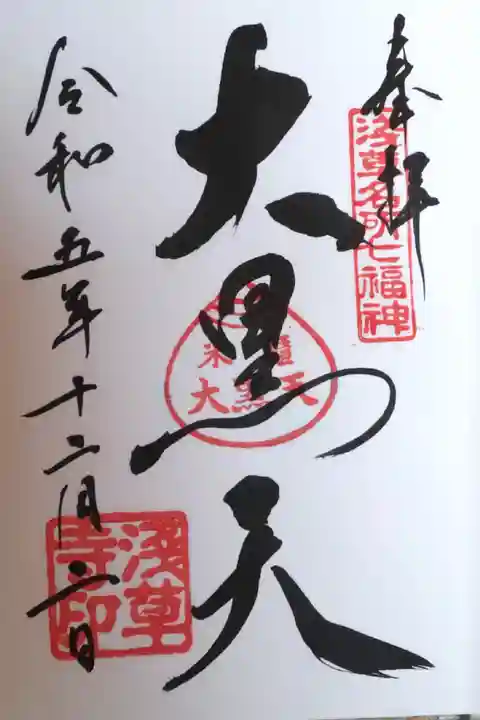 奉拝
浅草名所七福神
大黒天
米櫃
大黒天
令和五年十二月二日
浅草
寺印